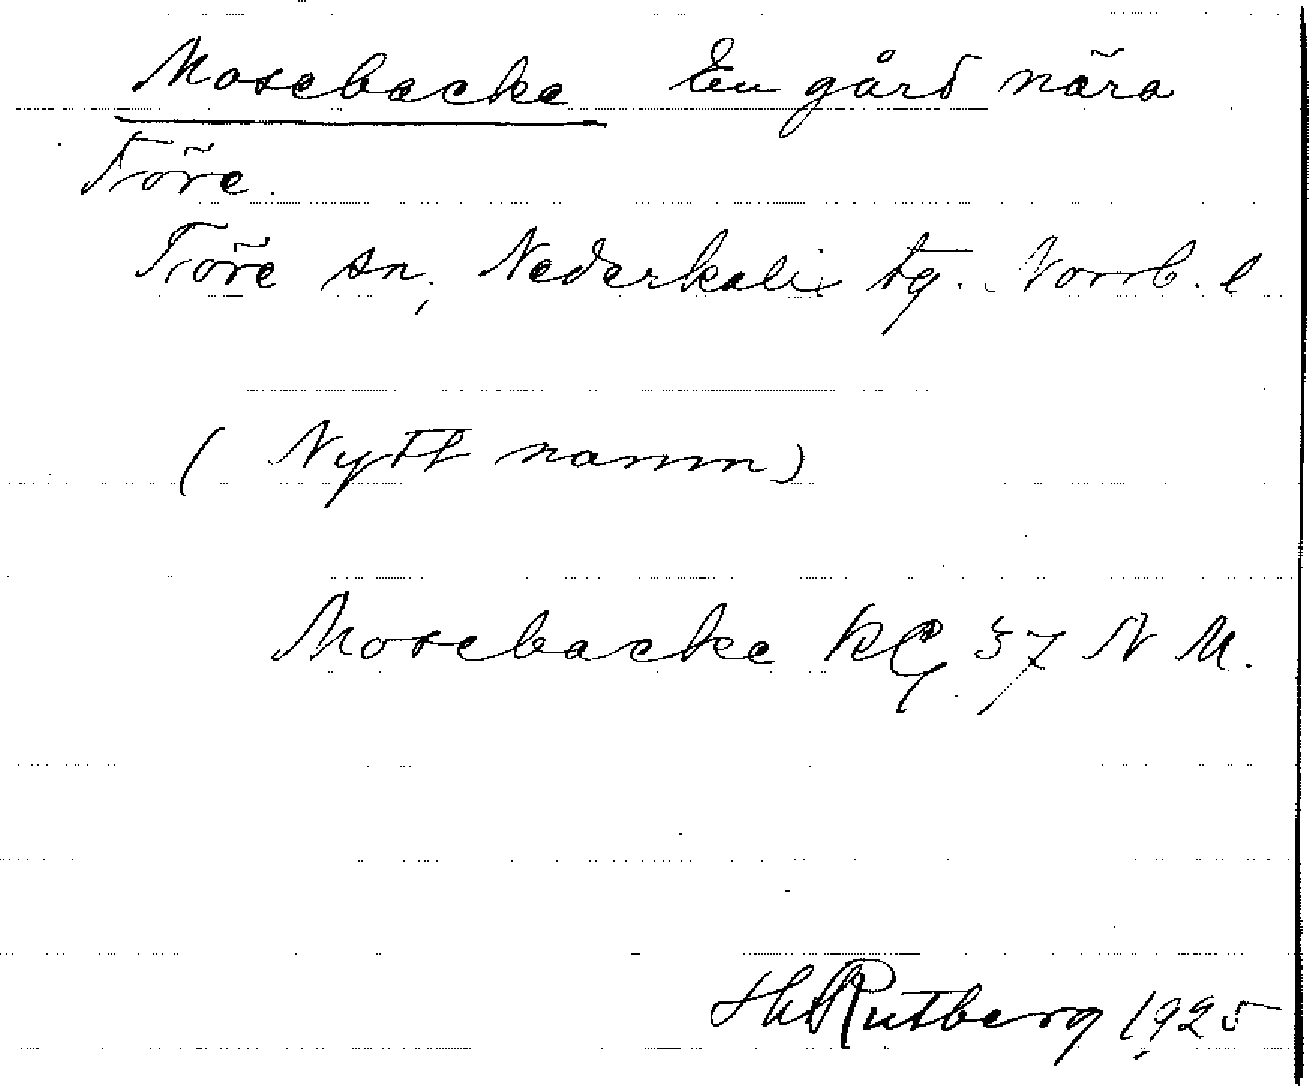 Mosebacke En gård nära
Töre.
Töre sn, Nederkalix tg. Norrb. l
( Nytt namn)
Mosebacke 57 N M.
Rutberg 1925